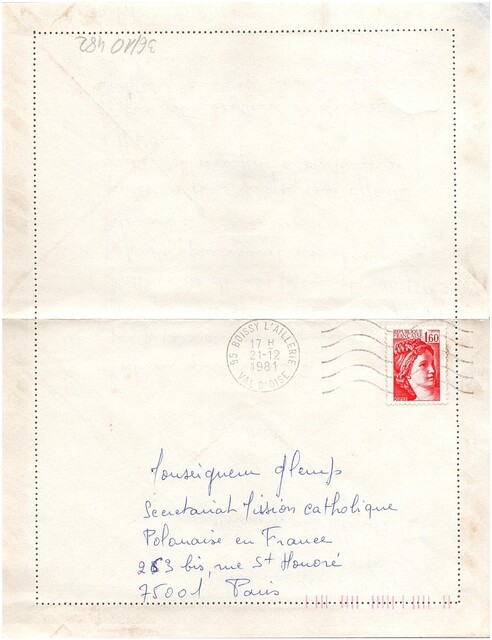 36/110 482
95 BOISSY L'AILLERIE
17 H
21-12
1981
VAL D'OISE
REPUBLIQUE
FRANCAISE
1,60
Monseigneur Glemp
Secretariat Mission catholique
Polonaise en France
263 bis, rue St Honoré
75001 Paris